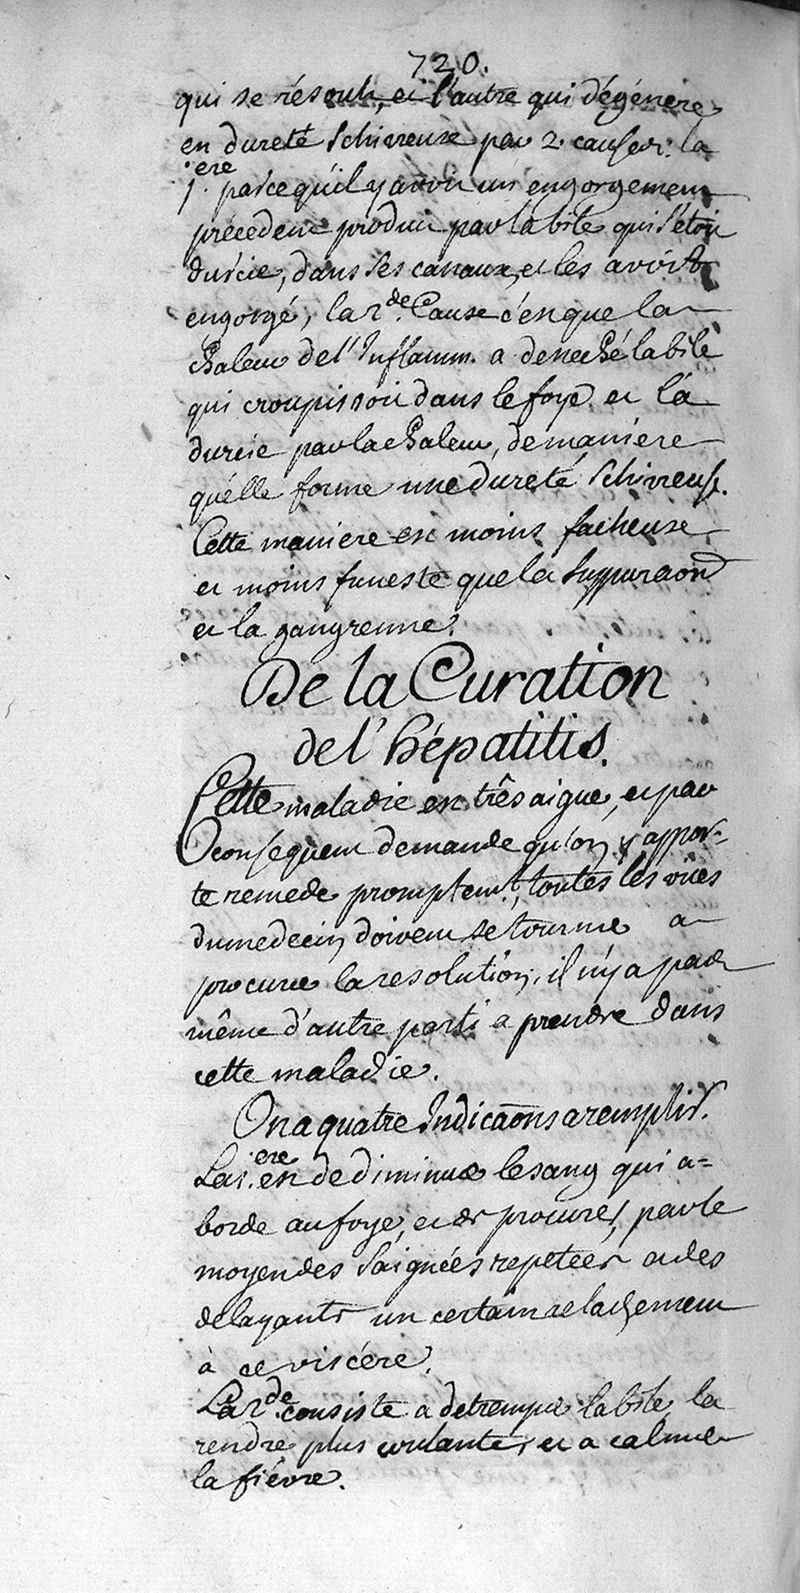 720.
qui se résout, et l'autre qui dégénere
en dureté schirreuse par 2. causes: la
1.ere parcequ'il y avoit un engorgement
précédent produit par la bile qui s'étoit
durcie, dans ses canaux, et les avoit
engorgé, la 2.de Cause c'est que la
chaleur de l'Inflamm. a desseché la bile
qui croupissoit dans le foye et la
durcie par la chaleur, de maniere
qu'elle forme une dureté schirreuse.
Cette maniere est moins facheuse
et moins funeste que la suppuraõn
et la gangrenne.
De la Curation
de l'hépatitis.
Cette maladie est três aigue, et par
consequent demande qu'on y appor-
te remede promptemt., toutes les vües
du medecin doivent se tourner a
procurer la resolution, il n'y a pas
même d'autre parti a prendre dans
cette maladie.
On a quatre Indicaõns a remplir.
La 1.ere est de diminuer le sang qui a=
borde au foye, et de procurer, par le
moyen des saignées repetées et des
delayants un certain relachement
à ce viscére.
La 2.de consiste a detremper la bile, la
rendre plus coulante, et a calmer
la fiévre.